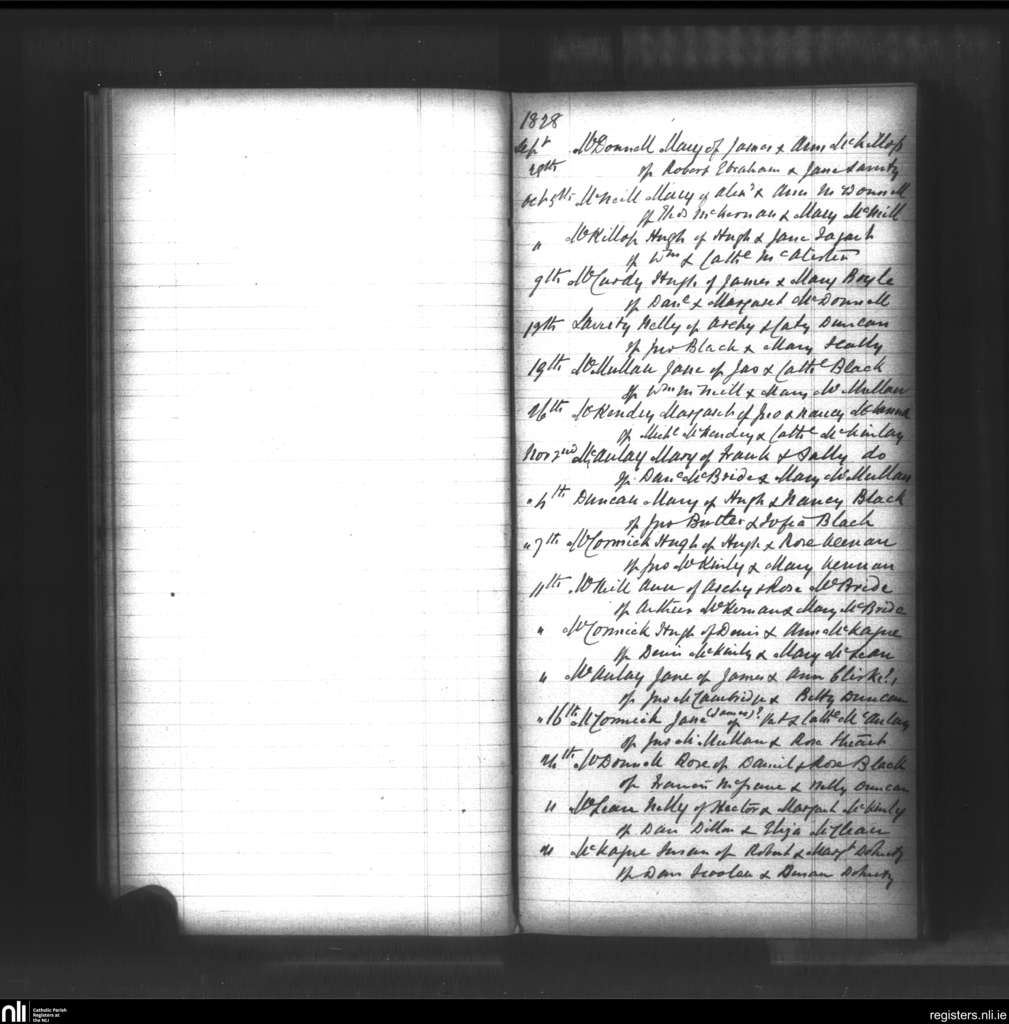 1828
Sept McDonnell Mary of James & Ann McKillop
28th of Robert Ebraham & Jane Laverty
Oct 5th McNeill Mary of Alexr & Ann McDonnell
of Thos McKernan & Mary McNeill
" McKillop Hugh of Hugh & Jane
of Wm & Cathe McAlister
9th McCurdy Hugh of James & Mary Boyle
of Danl & Margaret McDonnell
19th Laverty Nelly of Archy & Caty Duncan
of Jno Black & Mary Scally
19th McMullan Jane of Jas & Cathe Black
of Wm McNeill & Mary McMullan
26th McKendry Margaret of Jno & Nancy
of Michl McKendry & Cathe McKinlay
Nov 2nd McAulay Mary of Frank & Sally do
of Danl McBride & Mary McMullan
" 4th Duncan Mary of Hugh & Nancy Black
of Jno Butler & Sofia Black
" 7th McCormick Hugh of Hugh & Rose Keenan
of Jno McKinly & Mary Kennan
11th McNeill Ann of Archy & Rose McBride
of Arthur McKernan & Mary McBride
" McCormick Hugh of Denis & Ann McKague
of Denis McKinly & Mary McLean
" McAulay Jane of James & Ann
of Jno McCambridge & Betty Duncan
" 16th McCormick Jane (James)? of Pat & Cathe McAulay
of Jno McMullan & Rose Stuart
24th McDonnell Rose of Daniel & Rose Black
of Francis & Nelly Duncan
" McLean Nelly of Hector & Margaret McKinly
of Dan Dillon & Eliza McLean
" McKague Susan of Robert & Margt Doherty
of Dan & Susan Doherty
nli Catholic Parish
Registers at
the NLI
registers.nli.ie